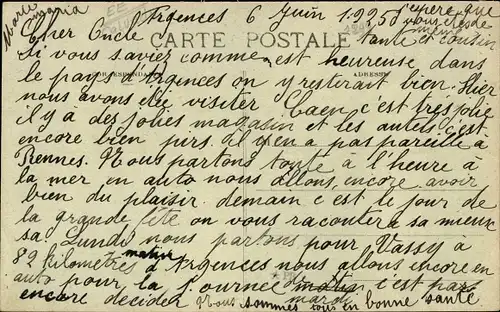 Argences 6 Juin 1925 j'espere que
Marie
Cher Oncle
vous etes de
même
CARTE POSTALE
tante et cousin
Si vous saviez comme on est heureuse dans
CORRESPONDANCE
ADRESSE
le pays d'Argences on y resterait bien. Hier
nous avons été visiter Caen c'est tres jolie
il y a des jolies magasin et les autels c'est
encore bien pirs. il y en a pas pareille a
Rennes. Nous partons toute à l'heure à
la mer en auto nous allons encore avoir
bien du plaisir. demain c'est le jour de
la grande fete on vous racontera sa mieux
sa. Lundi nous partons pour Vassy à
82 kilometres d'Argences nous allons encore en
matin
auto pour la journee c'est pas
mardi
encore decider Nous sommes tous en bonne santé